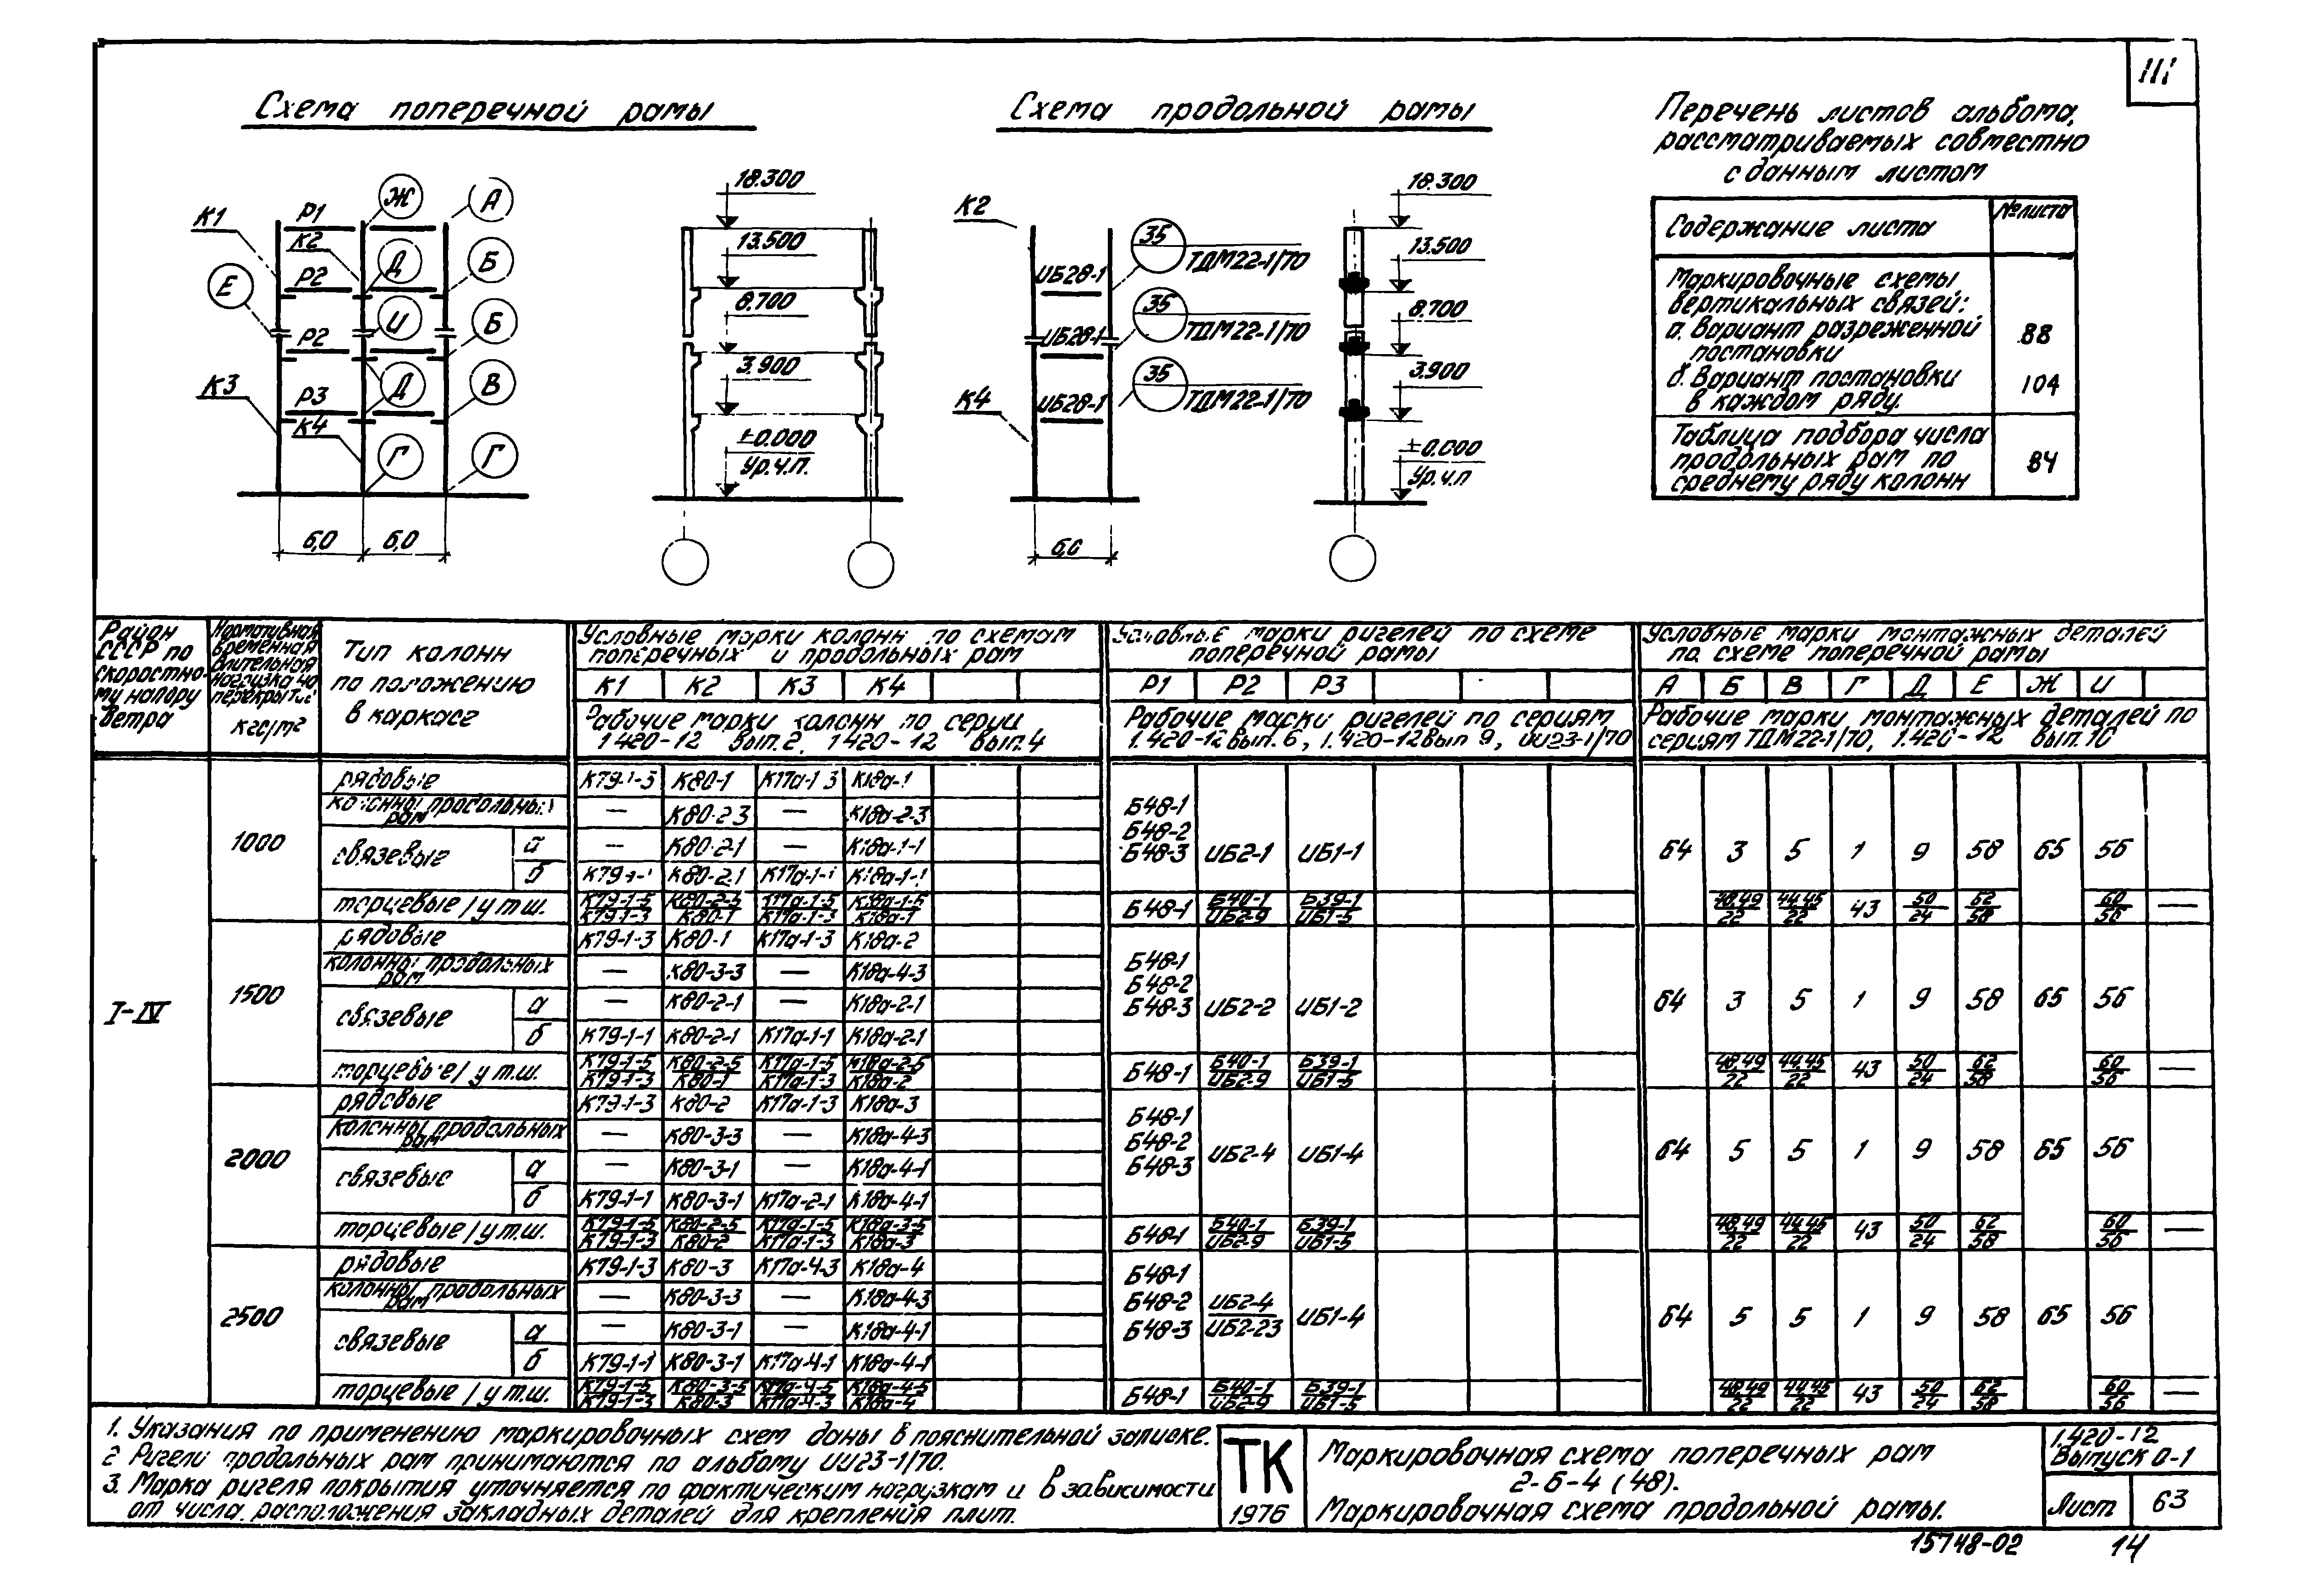 III
Схема поперечной рамы
Схема продольной рамы
Перечень листов альбома,
рассматриваемых совместно
с данным листом
Содержание листа № листа
Маркировочные схемы
вертикальных связей:
а. Вариант разреженной
постановки 88
б. Вариант постановки
в каждом ряду. 104
Таблица подбора числа
продольных рам по
среднему ряду колонн 84
К1 Р1 К2 Ж А
Р2 Д Б
Е И
Р2 Б
К3 Р3 Д В
К4 Г Г
6,0 6,0
18.300
13.500
8.700
3.900
±0.000
Ур.ч.п.
К2
ИБ28-1 35 ТДМ22-1/70
ИБ28-1 35 ТДМ22-1/70
К4 ИБ28-1 35 ТДМ22-1/70
6,0
18.300
13.500
8.700
3.900
±0.000
Ур.ч.п
Район
СССР по
скоростно-
му напору
ветра
Нормативная
временная
длительная
нагрузка на
перекрытие
кгс/м²
Тип колонн
по положению
в каркасе
Условные марки колонн по схемам
поперечных и продольных рам
К1 К2 К3 К4
Рабочие марки колонн по серии
1 420-12 вып. 2, 1 420-12 вып. 4
Условные марки ригелей по схеме
поперечной рамы
Р1 Р2 Р3
Рабочие марки ригелей по сериям
1.420-12 вып. 6, 1.420-12 вып 9, ИИ23-1/70
Условные марки монтажных деталей
по схеме поперечной рамы
А Б В Г Д Е Ж И
Рабочие марки монтажных деталей по
сериям ТДМ22-1/70, 1.420-12 вып. 10
I-IV
1000
рядовые К79-1-3 К80-1 К17а-1-3 К18а-1
колонны продольных рам — К80-2-3 — К18а-2-3
связевые а — К80-2-1 — К18а-1-1
б К79-1-1 К80-2-1 К17а-1-1 К18а-1-1
Б48-1
Б48-2
Б48-3 ИБ2-1 ИБ1-1 64 3 5 1 9 58 65 56
торцевые / у т.ш. К79-1-5 К80-2-5 К17а-1-5 К18а-1-5
К79-1-3 К80-1 К17а-1-3 К18а-1
Б48-1 Б40-1 Б39-1 48,49 44,45 43 50 62 60 —
ИБ2-9 ИБ1-5 22 22 24 58 56
1500
рядовые К79-1-3 К80-1 К17а-1-3 К18а-2
колонны продольных рам — К80-3-3 — К18а-4-3
связевые а — К80-2-1 — К18а-2-1
б К79-1-1 К80-2-1 К17а-1-1 К18а-2-1
Б48-1
Б48-2
Б48-3 ИБ2-2 ИБ1-2 64 3 5 1 9 58 65 56
торцевые / у т.ш. К79-1-5 К80-2-5 К17а-1-5 К18а-2-5
К79-1-3 К80-1 К17а-1-3 К18а-2
Б48-1 Б40-1 Б39-1 48,49 44,45 43 50 62 60 —
ИБ2-9 ИБ1-5 22 22 24 58 56
2000
рядовые К79-1-3 К80-2 К17а-1-3 К18а-3
колонны продольных рам — К80-3-3 — К18а-4-3
связевые а — К80-3-1 — К18а-4-1
б К79-1-1 К80-3-1 К17а-2-1 К18а-4-1
Б48-1
Б48-2
Б48-3 ИБ2-4 ИБ1-4 64 5 5 1 9 58 65 56
торцевые / у т.ш. К79-1-5 К80-2-5 К17а-1-5 К18а-3-5
К79-1-3 К80-2 К17а-1-3 К18а-3
Б48-1 Б40-1 Б39-1 48,49 44,45 43 50 62 60 —
ИБ2-9 ИБ1-5 22 22 24 58 56
2500
рядовые К79-1-3 К80-3 К17а-4-3 К18а-4
колонны продольных рам — К80-3-3 — К18а-4-3
связевые а — К80-3-1 — К18а-4-1
б К79-1-1 К80-3-1 К17а-4-1 К18а-4-1
Б48-1
Б48-2 ИБ2-4
Б48-3 ИБ2-23 ИБ1-4 64 5 5 1 9 58 65 56
торцевые / у т.ш. К79-1-5 К80-3-5 К17а-4-5 К18а-4-5
К79-1-3 К80-3 К17а-4-3 К18а-4
Б48-1 Б40-1 Б39-1 48,49 44,45 43 50 62 60 —
ИБ2-9 ИБ1-5 22 22 24 58 56
1. Указания по применению маркировочных схем даны в пояснительной записке.
2 Ригели продольных рам принимаются по альбому ИИ23-1/70.
3. Марка ригеля покрытия уточняется по фактическим нагрузкам и в зависимости
от числа расположения закладных деталей для крепления плит.
ТК
1976
Маркировочная схема поперечных рам
2-6-4 (48).
Маркировочная схема продольной рамы.
1.420-12
Выпуск 0-1
Лист 63
15748-02 14